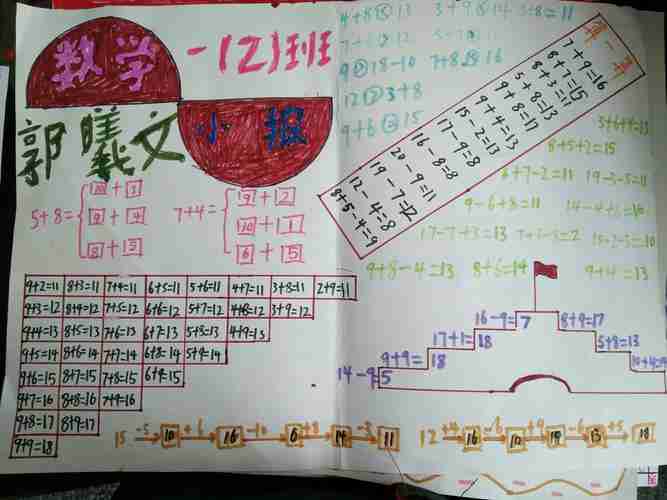 数学
一(2)班
小报
郭曦文
4+8 13 3+9 14 3+8=11
7+8 16
9 18-10
12 3+8
9+6 15
算一算
7+9=16
8+7=15
8+3=11
5+8=13
9+8=17
9+4=13
15-2=13
17-9=8
16-8=8
20-9=11
19-7=12
12-4=8
8+5-4=9
3+6+4=13
8+5+2=15
6+7-2=11 19-3-5=11
9-6+8=11 14-4+5=10
17-7+3=13 7+5-5=2
9+8-4=13 8+6=14 9+4=13
5+8= 10+3
9+4
8+5
7+4= 9+2
10+1
6+5
9+2=11 8+3=11 7+4=11 6+5=11 5+6=11 4+7=11 3+8=11 2+9=11
9+3=12 8+4=12 7+5=12 6+6=12 5+7=12 4+8=12 3+9=12
9+4=13 8+5=13 7+6=13 6+7=13 5+8=13 4+9=13
9+5=14 8+6=14 7+7=14 6+8=14 5+9=14
9+6=15 8+7=15 7+8=15 6+9=15
9+7=16 8+8=16 7+9=16
9+8=17 8+9=17
9+9=18
14-9=5
9+9=18
17+1=18
16-9=7
8+9=17
5+8=13
10+4=14
15 -5 10 +6 16 -10 6 +8 14 -3 11
12 +4 16 -6 10 +9 19 -6 13 +5 18